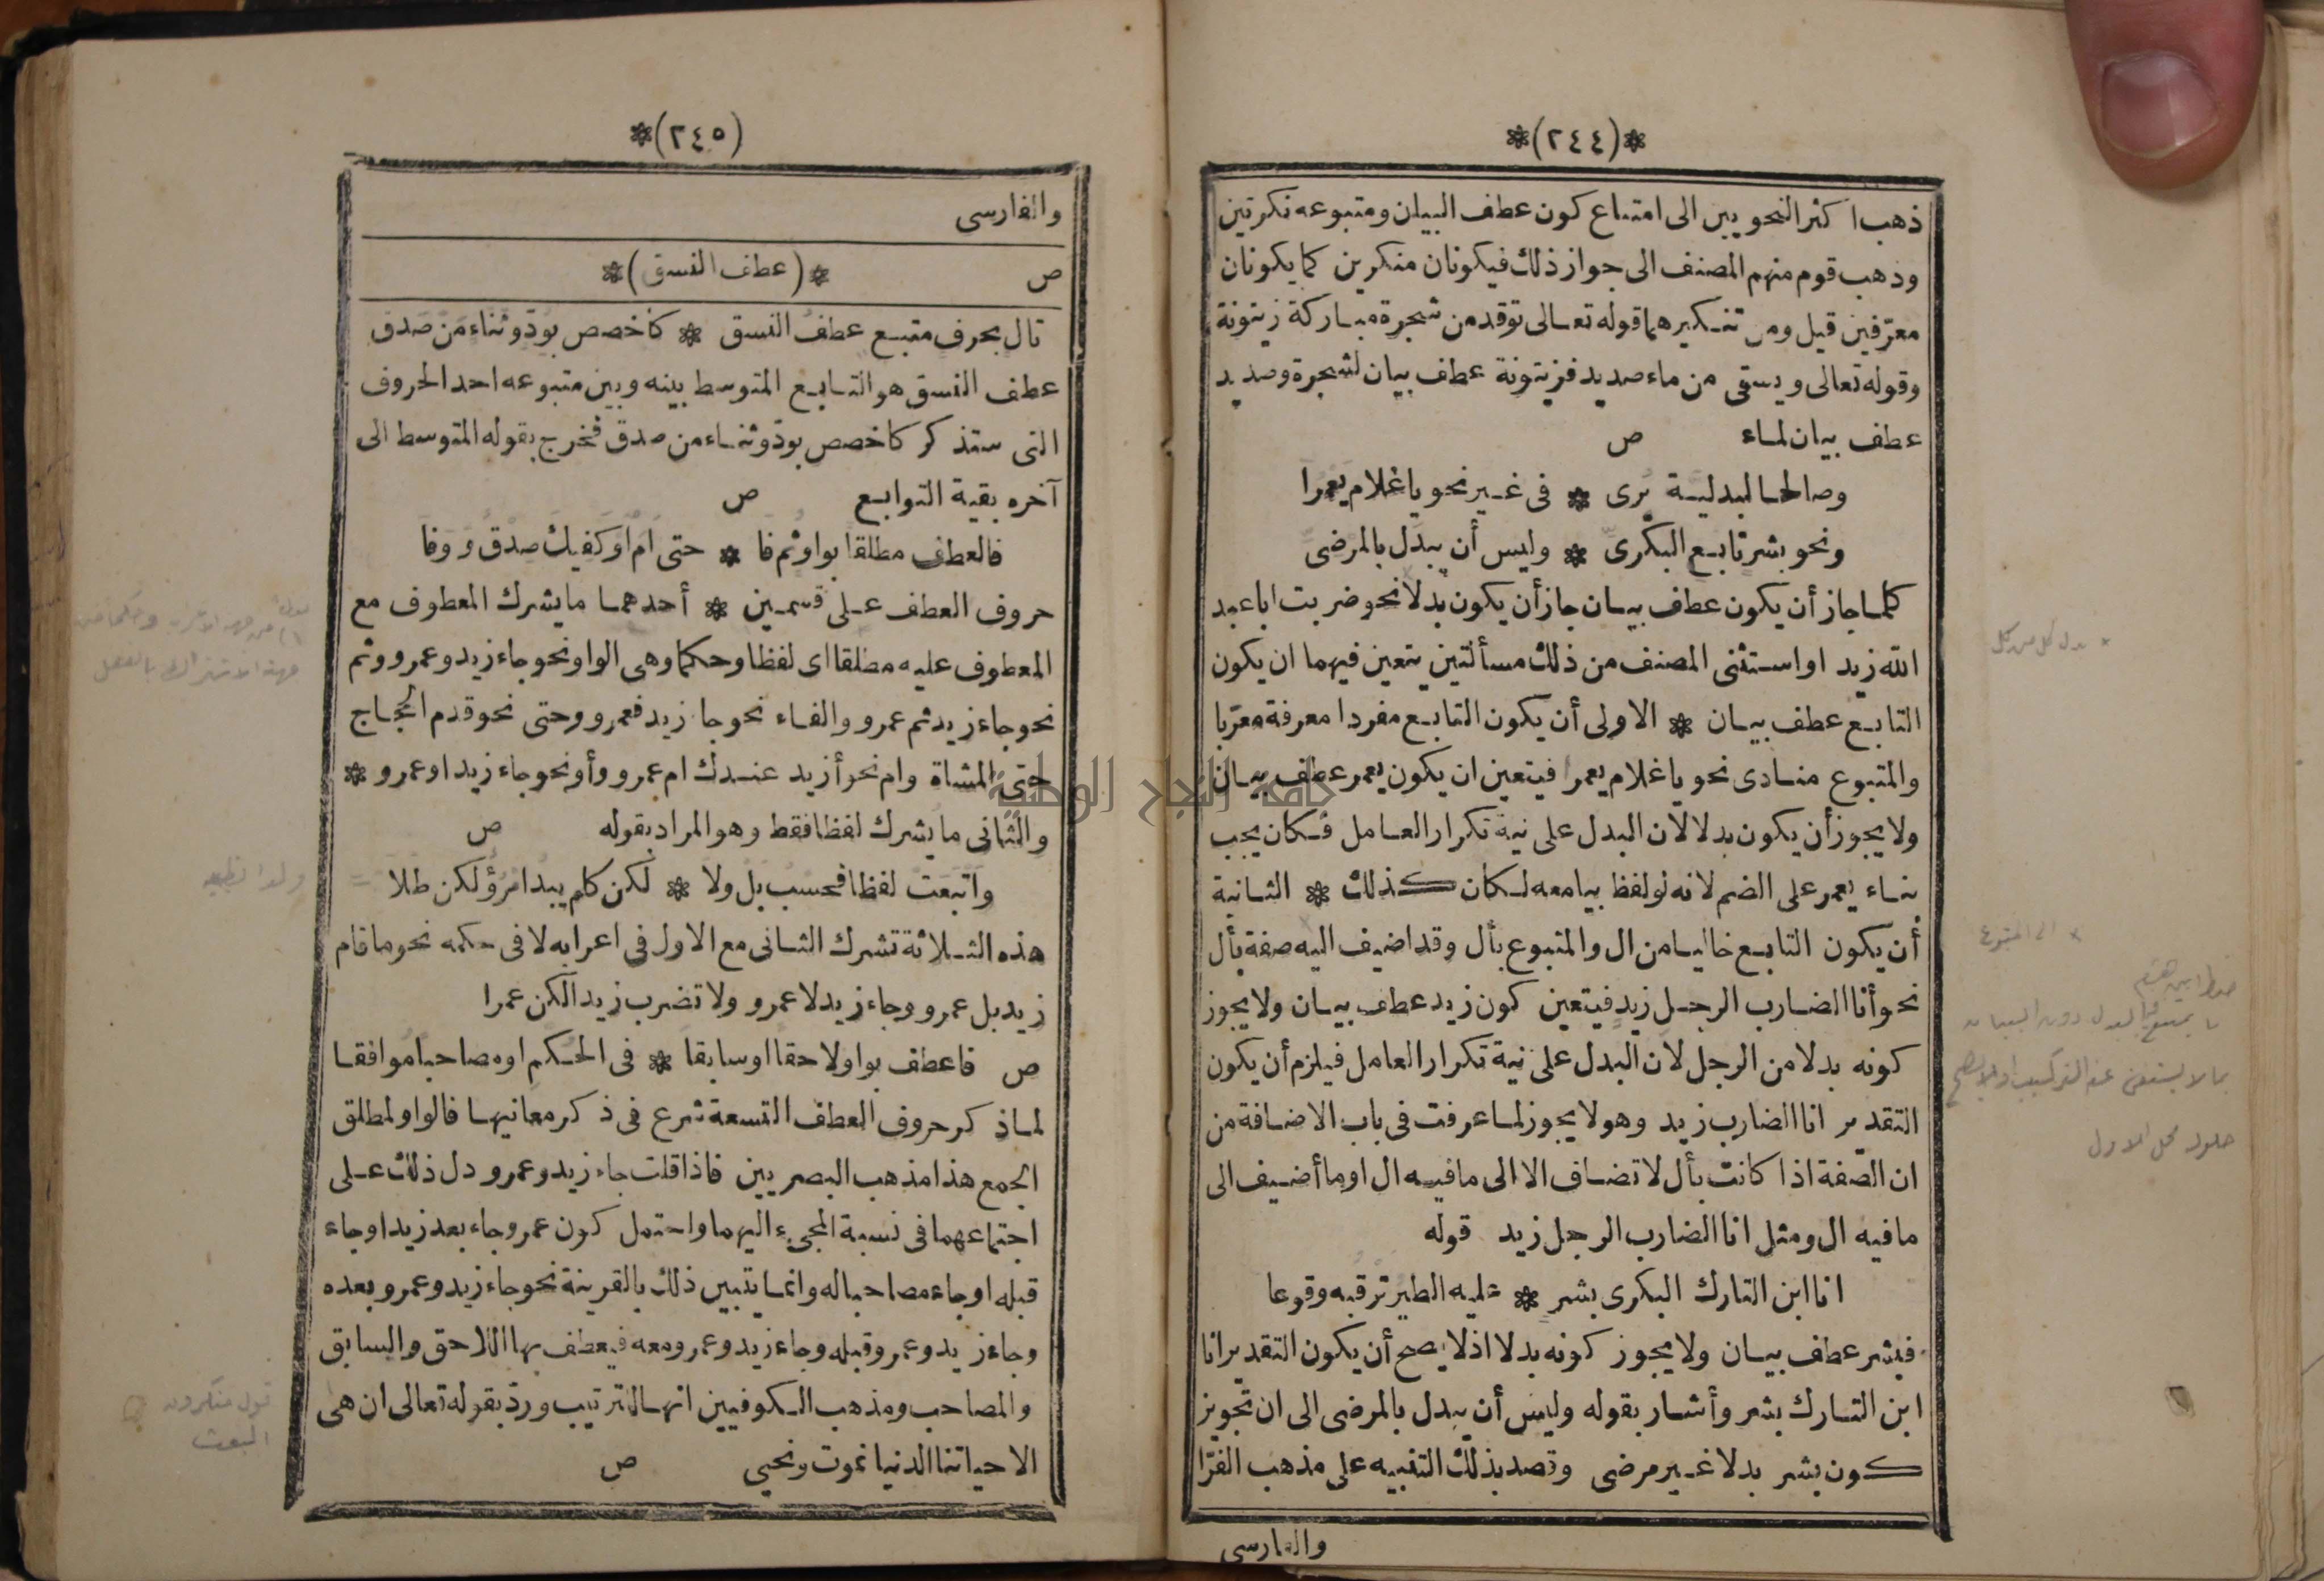 *(٢٤٤)*
ذهب اكثر النحويين الى امتناع كون عطف البيان ومتبوعه نكرتين
وذهب قوم منهم المصنف الى جواز ذلك فيكونان منكرين كما يكونان
معرّفين قيل ومن تنكيرهما قوله تعالى توقد من شجرة مباركة زيتونة
وقوله تعالى ويسقى من ماء صديد فزيتونة عطف بيان لشجرة وصديد
عطف بيان لماء ص
وصالحا لبدلية يرى * فى غير نحو ياغلام يعمرا
ونحو بشر تابع البكرىّ * وليس أن يبدل بالمرضىّ
كلما جاز أن يكون عطف بيان جاز أن يكون بدلا نحو ضربت ابا عبد
الله زيد او استثنى المصنف من ذلك مسألتين يتعين فيهما ان يكون
التابع عطف بيان * الاولى أن يكون التابع مفردا معرفة معربا
والمتبوع منادى نحو ياغلام يعمرا فيتعين ان يكون يعمر عطف بيان
ولا يجوز أن يكون بدلا لان البدل على نية تكرار العامل فكان يجب
بناء يعمر على الضم لانه لو لفظ بيا معه لكان كذلك * الثانية
أن يكون التابع خاليا من ال والمتبوع بأل وقد اضيف اليه صفة بأل
نحو أنا الضارب الرجل زيد فيتعين كون زيد عطف بيان ولا يجوز
كونه بدلا من الرجل لان البدل على نية تكرار العامل فيلزم أن يكون
التقدير انا الضارب زيد وهو لا يجوز لما عرفت فى باب الاضافة من
ان الصّفة اذا كانت بأل لا تضاف الا الى ما فيه ال او ما أضيف الى
ما فيه ال ومثل انا الضارب الرجل زيد قوله
انا ابن التارك البكرى بشر * عليه الطير ترقبه وقوعا
فبشر عطف بيان ولا يجوز كونه بدلا اذ لا يصح أن يكون التقدير انا
ابن التارك بشر وأشار بقوله وليس أن يبدل بالمرضى الى ان تجويز
كون بشر بدلا غير مرضى وقصد بذلك التنبيه على مذهب الفرّا
والفارسى
* بدل كل من كل
(٢٤٥)*
والفارسى
ص *(عطف النسق)*
تال بحرف متبع عطف النسق * كاخصص بودّ وثناء من صدق
عطف النسق هو التابع المتوسط بينه وبين متبوعه احد الحروف
التى ستذكر كاخصص بودّ وثناء من صدق فخرج بقوله المتوسط الى
آخره بقية التوابع ص
فالعطف مطلقا بواو ثم فا * حتى ام او كفيك صدق ووفا
حروف العطف على قسمين * أحدهما ما يشرك المعطوف مع
المعطوف عليه مطلقا اى لفظا وحكما وهى الواو نحو جاء زيد وعمرو وثم
نحو جاء زيد ثم عمرو والفاء نحو جا زيد فعمرو وحتى نحو قدم الحجاج
حتى المشاة وام نحو أزيد عندك ام عمرو وأو نحو جاء زيد او عمرو *
والثانى ما يشرك لفظا فقط وهو المراد بقوله ص
واتبعت لفظا فحسب بل ولا * لكن كلم يبد امرؤ لكن طلا
هذه الثلاثة تشرك الثانى مع الاول فى اعرابه لا فى حكمه نحو ما قام
زيد بل عمرو وجاء زيد لا عمرو ولا تضرب زيدا لكن عمرا
ص فاعطف بواو لاحقا او سابقا * فى الحكم او مصاحبا موافقا
لما ذكر حروف العطف التسعة شرع فى ذكر معانيها فالواو لمطلق
الجمع هذا مذهب البصريين فاذا قلت جاء زيد وعمرو دل ذلك على
اجتماعهما فى نسبة المجىء اليهما واحتمل كون عمرو جاء بعد زيد او جاء
قبله او جاء مصاحبا له وانما يتبين ذلك بالقرينة نحو جاء زيد وعمرو بعده
وجاء زيد وعمرو قبله وجاء زيد وعمرو معه فيعطف بها اللاحق والسابق
والمصاحب ومذهب الكوفيين انها للترتيب وردّ بقوله تعالى ان هى
الا حياتنا الدنيا نموت ونحيى ص
جامعة النجاح الوطنية